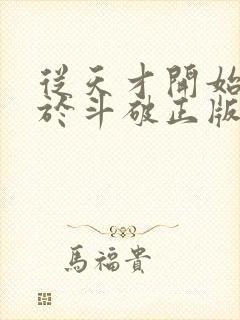 從天才開始
於斗破正版
馬福貴